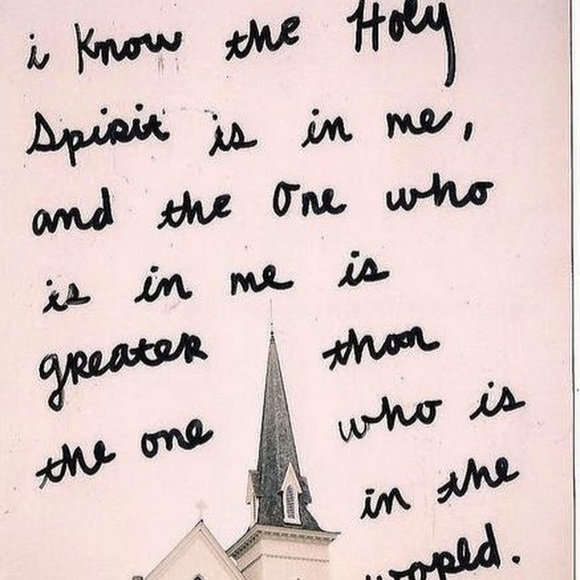 i know the Holy
Spirit is in me,
and the One who
is in me is
greater than
the one who is
in the
world.